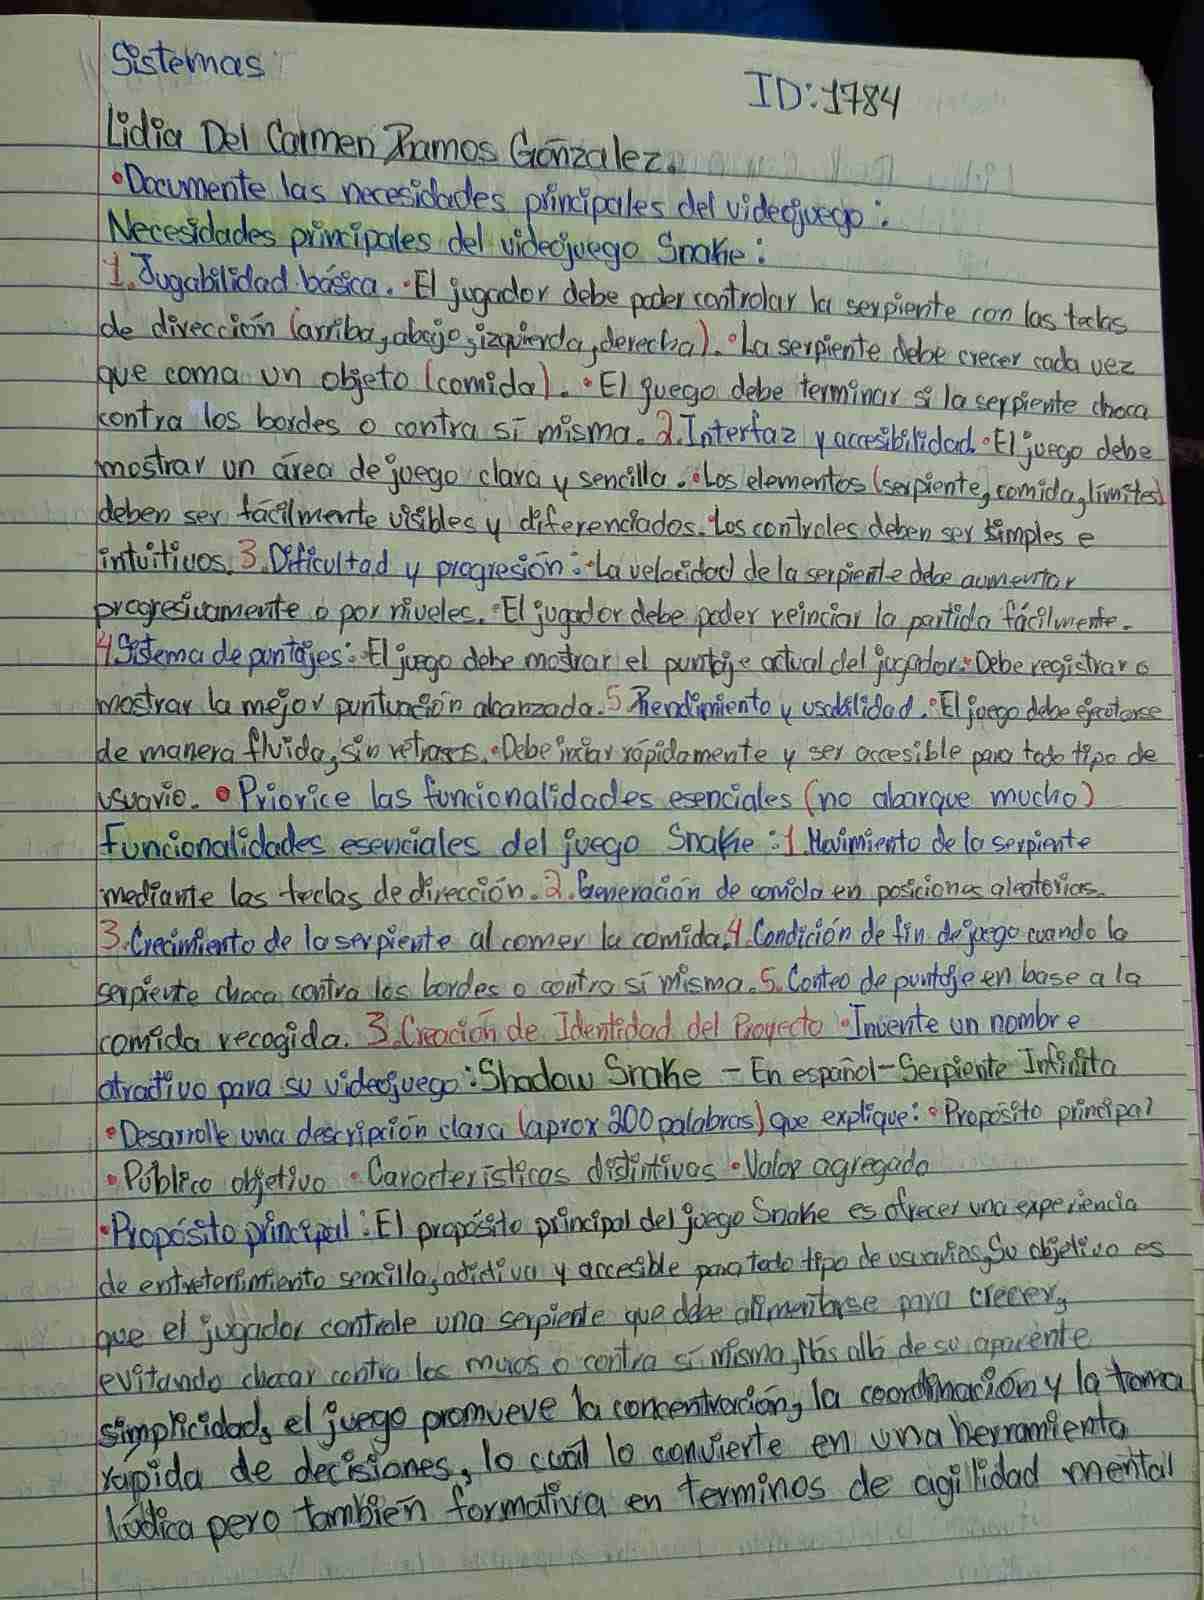 Sistemas
ID:1784
Lidia Del Carmen Ramos Gónzalez.
•Documente las necesidades principales del videojuego:
Necesidades principales del videojuego Snake:
1.Jugabilidad básica. •El jugador debe poder controlar la serpiente con las teclas
de dirección (arriba, abajo, izquierda, derecha). •La serpiente debe crecer cada vez
que coma un objeto (comida). •El juego debe terminar si la serpiente choca
contra los bordes o contra sí misma. 2.Interfaz y accesibilidad •El juego debe
mostrar un área de juego clara y sencilla. •Los elementos (serpiente, comida, límites)
deben ser fácilmente visibles y diferenciados. •Los controles deben ser simples e
intuitivos. 3.Dificultad y progresión: •La velocidad de la serpiente debe aumentar
progresivamente o por niveles. •El jugador debe poder reinciar la partida fácilmente.
4 Sistema de puntajes: •El juego debe mostrar el puntaje actual del jugador •Debe registrar o
mostrar la mejor puntuación alcanzada. 5 Rendimiento y usabilidad. •El juego debe ejecutarse
de manera fluida, sin retrasos. •Debe iniciar rápidamente y ser accesible para todo tipo de
usuario. •Priorice las funcionalidades esenciales (no abarque mucho)
Funcionalidades esenciales del juego Snake: 1.Movimiento de la serpiente
mediante las teclas de dirección. 2.Generación de comida en posiciones aleatorias.
3.Crecimiento de la serpiente al comer la comida. 4.Condición de fin de juego cuando la
serpiente choca contra los bordes o contra sí misma. 5.Conteo de puntaje en base a la
comida recogida. 3.Creación de Identidad del Proyecto •Invente un nombre
atractivo para su videojuego: Shadow Snake - En español - Serpiente Infinita
•Desarrolle una descripción clara (aprox 200 palabras) que explique: •Propósito principal
•Público objetivo •Características distintivas •Valor agregado
•Propósito principal: El propósito principal del juego Snake es ofrecer una experiencia
de entretenimiento sencilla, adictiva y accesible para todo tipo de usuarios. Su objetivo es
que el jugador controle una serpiente que debe alimentarse para crecer,
evitando chocar contra los muros o contra sí misma, Más allá de su aparente
simplicidad, el juego promueve la concentración, la coordinación y la toma
rápida de decisiones, lo cuál lo convierte en una herramienta
lúdica pero también formativa en terminos de agilidad mental